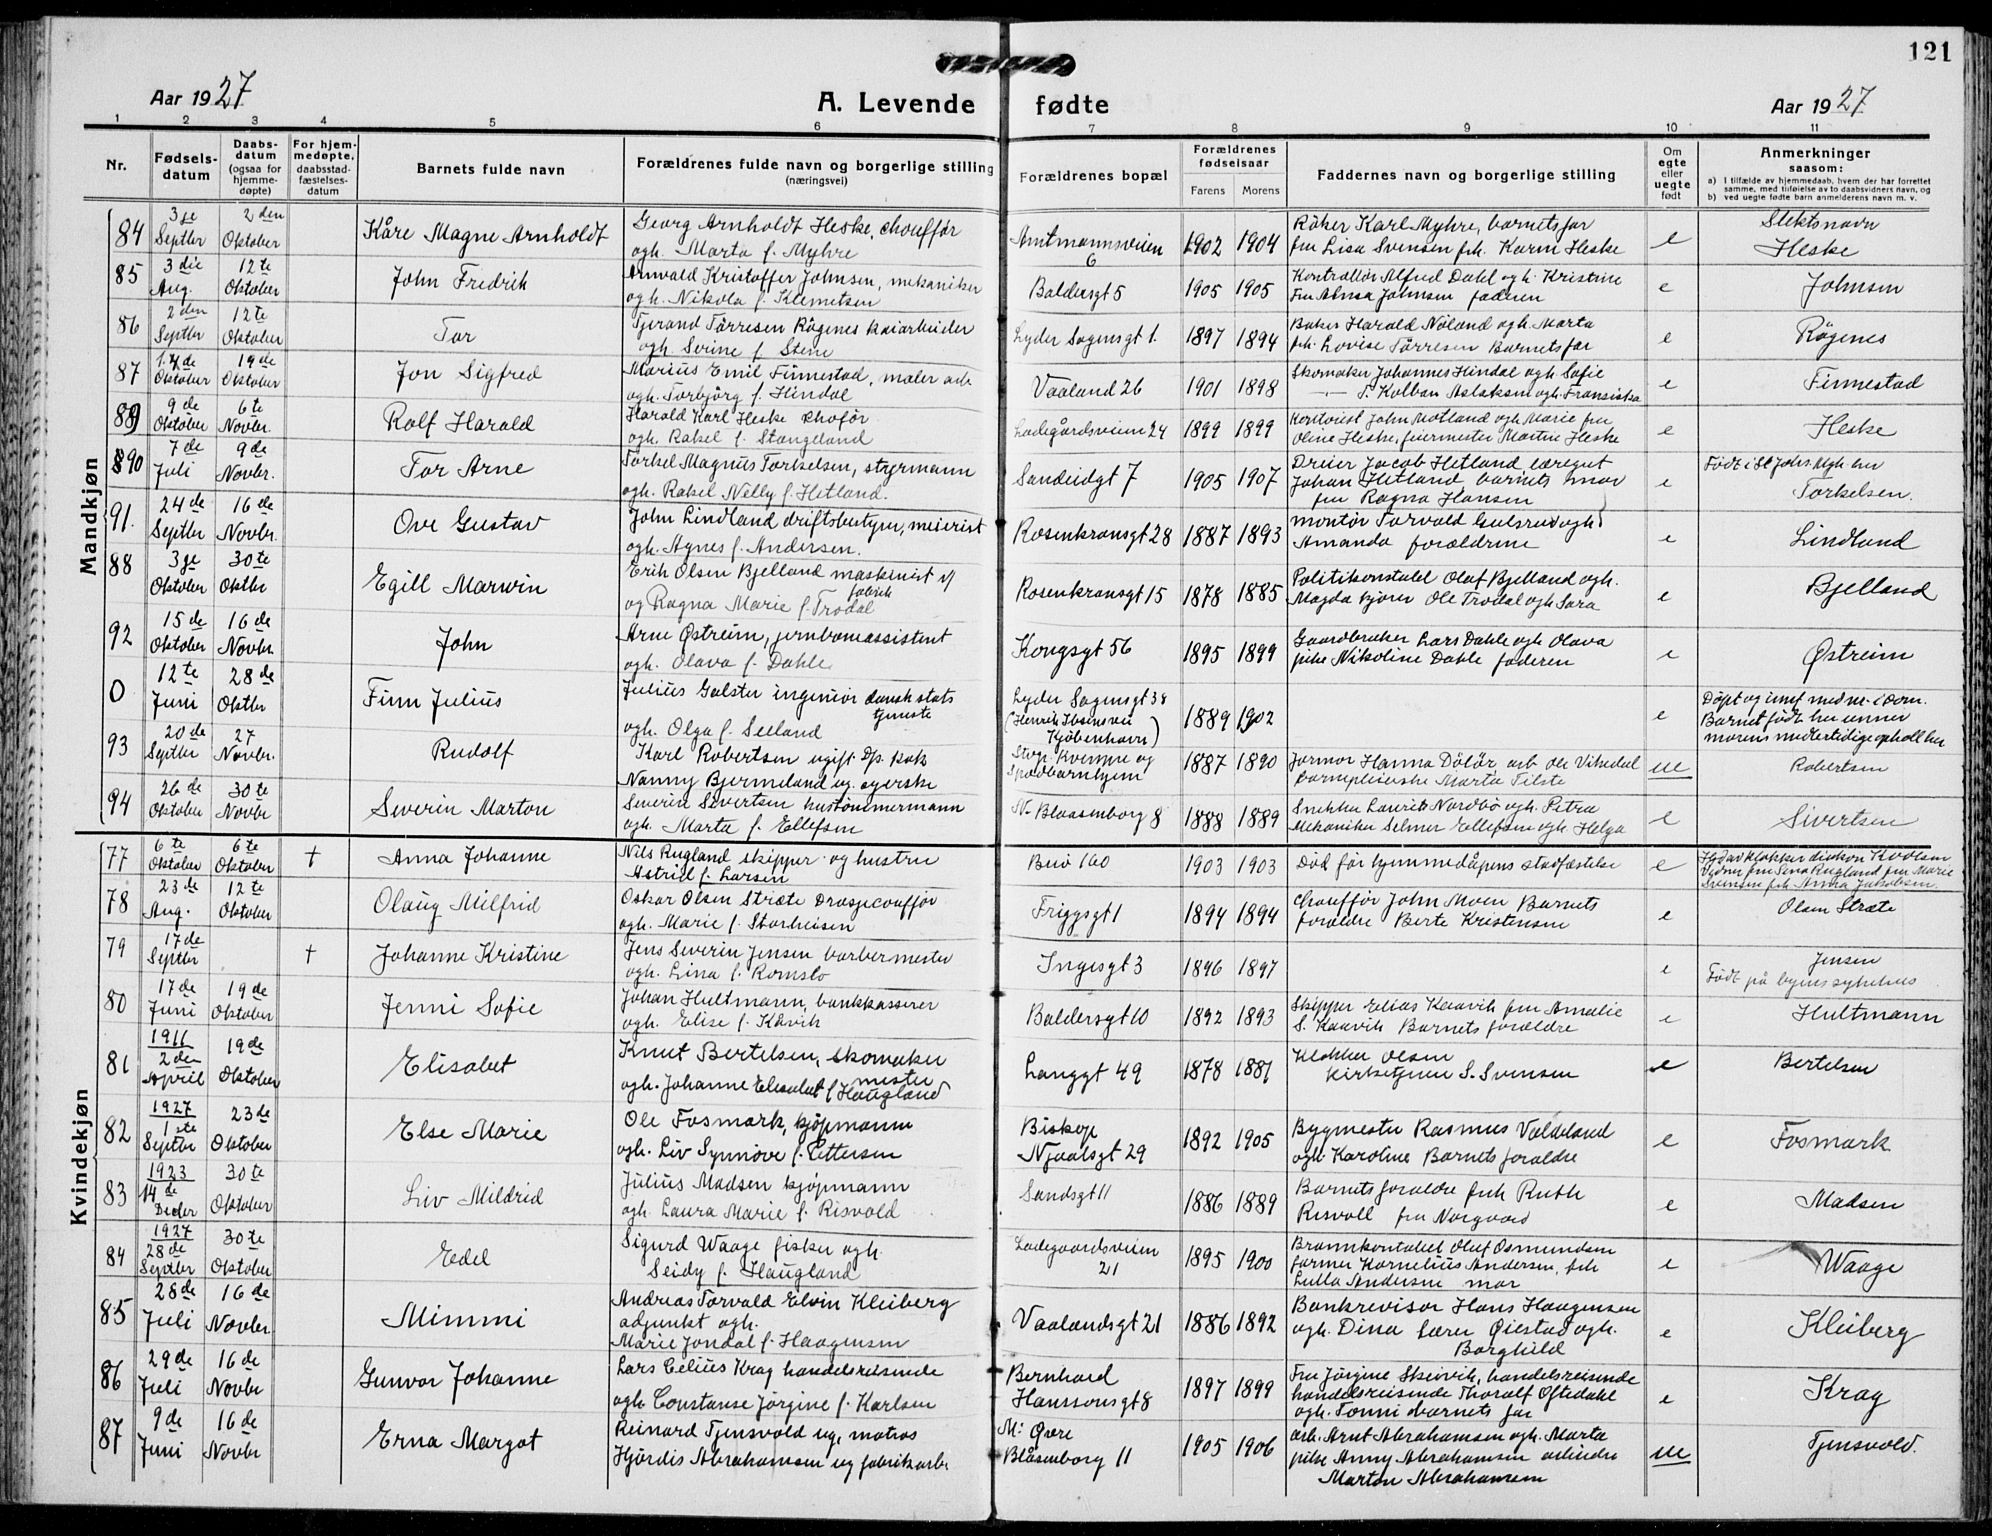 121
Aar 1927 A. Levende fødte Aar 1927
1 2 3 4 5 6 7 8 9 10 11
Nr.
Fødsels-
datum
Daabs-
datum
(ogsaa for
hjemme-
døpte)
For hjem-
medøpte,
daabsstad-
fæstelses-
datum
Barnets fulde navn
Forældrenes fulde navn og borgerlige stilling
(næringsvei)
Forældrenes bopæl
Forældrenes
fødselsaar
Farens Morens
Faddernes navn og borgerlige stilling
Om
egte
eller
uegte
født
Anmerkninger
saasom:
a) I tilfælde av hjemmedaab, hvem der har forrettet
samme, med tilføielse av to daabsvidners navn, og
b) ved uegte fødte barn anmelderens navn m. v.
Mandkjøn
84 3je Septbr 2den Oktober Kåre Magne Arnholdt
Georg Arnholdt Heske, chouffør
ogh. Marta f. Myhre
Amtmannsveien 6 1902 1904
Røker Karl Myhre, barnets far
fru Lisa Svensen frk. Karin Heske
e Slektsnavn
Heske
85 3die Aug. 12te Oktober John Fredrik
Anvald Kristoffer Johnsen, mekaniker
ogh. Nikola f. Klemetsen
Baldersgt 5 1905 1905
Kontrollør Alfred Dahl ogh. Kristine
Fru Anna Johnsen faderen
e Johnsen
86 2den Septbr 12te Oktober Tor
Tjerand Tørresen Røgenes kaiarbeider
ogh. Serine f. Stene
Lyder Sagensgt 1. 1897 1894
Baker Harald Nøland ogh. Marta
frk. Lovise Tørresen Barnets far
e Røgenes
87 14de Oktober 19de Oktober Jon Sigfred
Marius Emil Finnestad, maler arb
ogh. Torbjørg f. Hindal
Vaaland 26 1901 1898
Skomaker Johannes Hindal ogh. Sofie
— S. Kolban Aslaksen ogh. Fransiska
e Finnestad
89 9de Oktober 6te Novbr. Rolf Harald
Harald Karl Heske chofør
ogh. Rakel f. Stangeland
Ladegårdsveien 24 1899 1899
Kontorist John Motland ogh. Marie fru
Oline Heske, feiermester Martin Heske
e Heske
90 7de Juli 9de Novber. Tor Arne
Torkel Magnus Torkelsen, styrmann
ogh. Rakel Nelly f. Hetland.
Sandeidgt 7 1905 1907
Dreier Jacob Hetland, læregut
Johan Hetland barnets mor
fru Ragna Hansen
e Født i St Johs. Mgh. her
Torkelsen.
91. 24de Septbr 16de Novbr. Ove Gustav
John Lindland driftsbestyrer, meierist
ogh. Agnes f. Andersen.
Rosenkransgt 28 1887 1893
montør Torvald Gulsrud ogh
Amanda forældrene
e Lindland
88 3je Oktober 30te Oktbr Egill Marwin
Erik Olsen Bjelland maskinist v/
fabrik
og Ragna Marie f. Trodal
Rosenkransgt 15 1878 1885
Politikonstabel Olaf Bjelland ogh.
Magda kjører Ole Trodal ogh Sara
e Bjelland
92 15de Oktober 16de Novbr. John
Arne Østreim, jernbaneassistent
ogh. Olava f. Dahle
Kongsgt 56 1895 1899
Gaardbruker Lars Dahle ogh. Olava
pike Nikoline Dahle faderen
e Østreim
0 12te Juni 28de Oktbr Finn Julius
Julius Galster ingeniør dansk stats
tjeneste
ogh. Olga f. Seeland
Lyder Sagensgt 38
(Henrik Ibsensvei
Kjøbenhavn)
1889 1902
e Døpt og innf medne. i Dorn.
Barnet født her unner
morens midlertidige ophold her
93 20de Septbr 27 Novbr. Rudolf
Karl Robertsen ugift Dp. kok
Nanny Bjermeland ug. syerske
Stvgr. Kvinne og
Spædbarnhjem
1887 1890
Jormor Hanna Dølør arb Ole Vikedal
barnepleierske Marta Tilste
ue Robertsen
94 26de Oktober 30te Novbr Severin Marton
Severin Sivertsen hustømmermann
ogh. Marta f. Ellefsen
N. Blaasenborg 8 1888 1889
Snekker Laurits Nordbø ogh. Petra
Mekaniker Selmer Ellefsen ogh. Helga
e Sivertsen
Kvindekjøn
77 6te Oktober 6te Oktober † Anna Johanne
Nils Rugland skipper og hustru
Astrid f. Larsen
Buø 160 1903 1903
Død før hjemmedåpens stadfæstelse
e Hjd av klokker diakon K. Olsen
Vidner fru Sina Rugland fru Marie
Svensen frk Anna Jakobsen
78 23de Aug. 12te Oktober Olaug Milfrid
Oskar Olsen Stræte Drosjecouffør
ogh. Marie f. Storheisen
Friggsgt 1 1894 1894
Chouffør John Moen Barnets
forældre Berte Kristensen
e Olsen Stræte
79 17de Septbr † Johanne Kristine
Jens Severin Jensen barbermester
ogh. Lina f. Romslo
Ingesgt 3 1896 1897
e Jensen
Født på byens sykehus
80 17de Juni 19de Oktober Jenni Sofie
Johan Hultmann, bankkasserer
ogh. Elise f. Kåvik
Baldersgt 10 1892 1893
Skipper Elias Kaavik fru Amalie
S. Kaavik Barnets forældre
e Hultmann
81 1911 2den April 19de Oktober Elisabet
Knut Bertelsen, skomaker
mester
ogh. Johanne Elisabet f Haugland
Langgt 49 1878 1881
Klokker Olsen
Kirketjener S. Svensen
e Bertelsen
82 1927 1ste Septbr 23de Oktober Else Marie
Ole Fosmark, kjøpmann
ogh. Liv Synnøve f. Pettersen
Biskop
Njaalsgt 29
1892 1905
Bygmester Rasmus Valdeland
ogh. Karoline Barnets forældre
e Fosmark
83 1923 14de Decbr 30te Oktober Liv Mildrid
Julius Madsen kjøpmann
ogh. Laura Marie f. Risvold
Sandsgt 11 1886 1889
Barnets forældre frk Ruth
Risvoll fru Norgaard
e Madsen
84 1927 28de Septbr 30te Oktober Edel
Sigurd Waage fisker ogh.
Seidy f. Haugland
Ladegaardsveien
21
1895 1900
Brannkonstabel Oluf Osmundsen
farmer Kornelius Andersen, frk
Lulla Andersen mor
e Waage
85 28de Juli 16de Novbr. Mimmi
Andreas Torvald Elvin Kleiberg
adjunkt ogh.
Marie Jondal f. Haagensen
Vaalandsgt 21 1886 1892
Bankrevisor Hans Haagensen
ogh. Dina Lærer Øiestad ogh.
Borghild
e Kleiberg
86 29de Juli 16de Novbr Gunvor Johanne
Lars Celius Krag handelsreisende
ogh. Constanse Jørgine f. Karlsen
Bernhard
Hanssonsgt 8
1897 1899
Fru Jørgine Skeivik, handelsreisende
handelsreisende Thoralf Oftedahl
ogh. Tonni barnets far
e Krag
87 9de Juni 16de Novbr Erna Margot
Reinard Tjensvold ug. matros
Hjørdis Abrahamsen ug fabrikarb.
M: Øvre
Blåsenborg 11
1905 1906
arb. Arnt Abrahamsen ogh. Marta
pike Anny Abrahamsen arbeider
Marton Abrahamsen
ue Tjensvold.